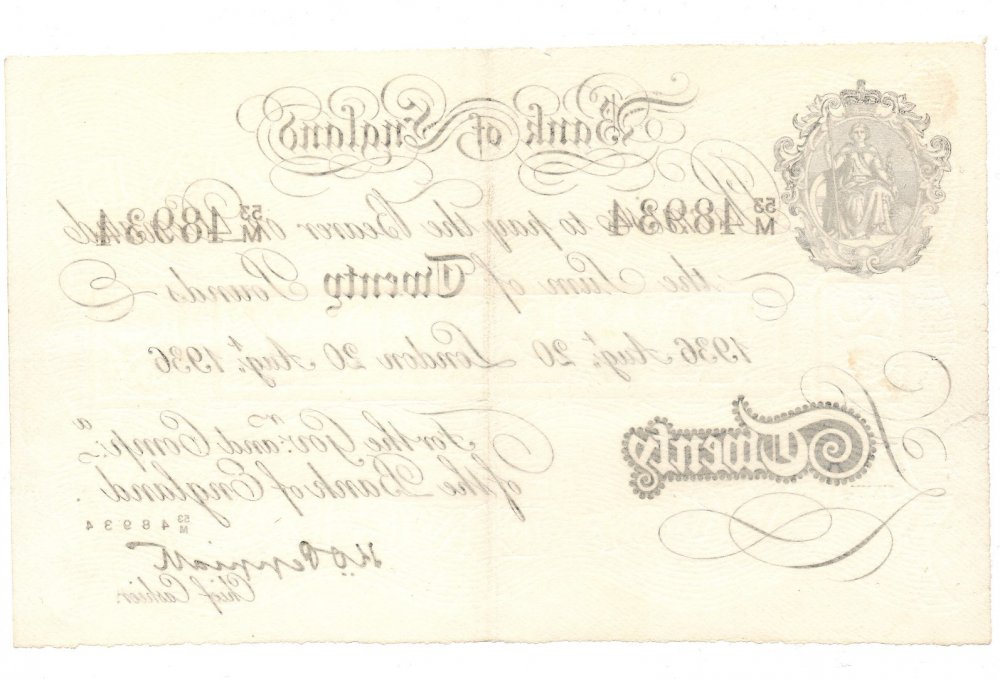 Bank of England
53/M 48934 I Promise to pay the Bearer on Demand 53/M 48934
the Sum of Twenty Pounds
1936 Augt. 20 London 20 Augt. 1936
For the Govr. and Compa.
of the Bank of England.
Twenty
53/M 48934
K O Peppiatt
Chief Cashier.